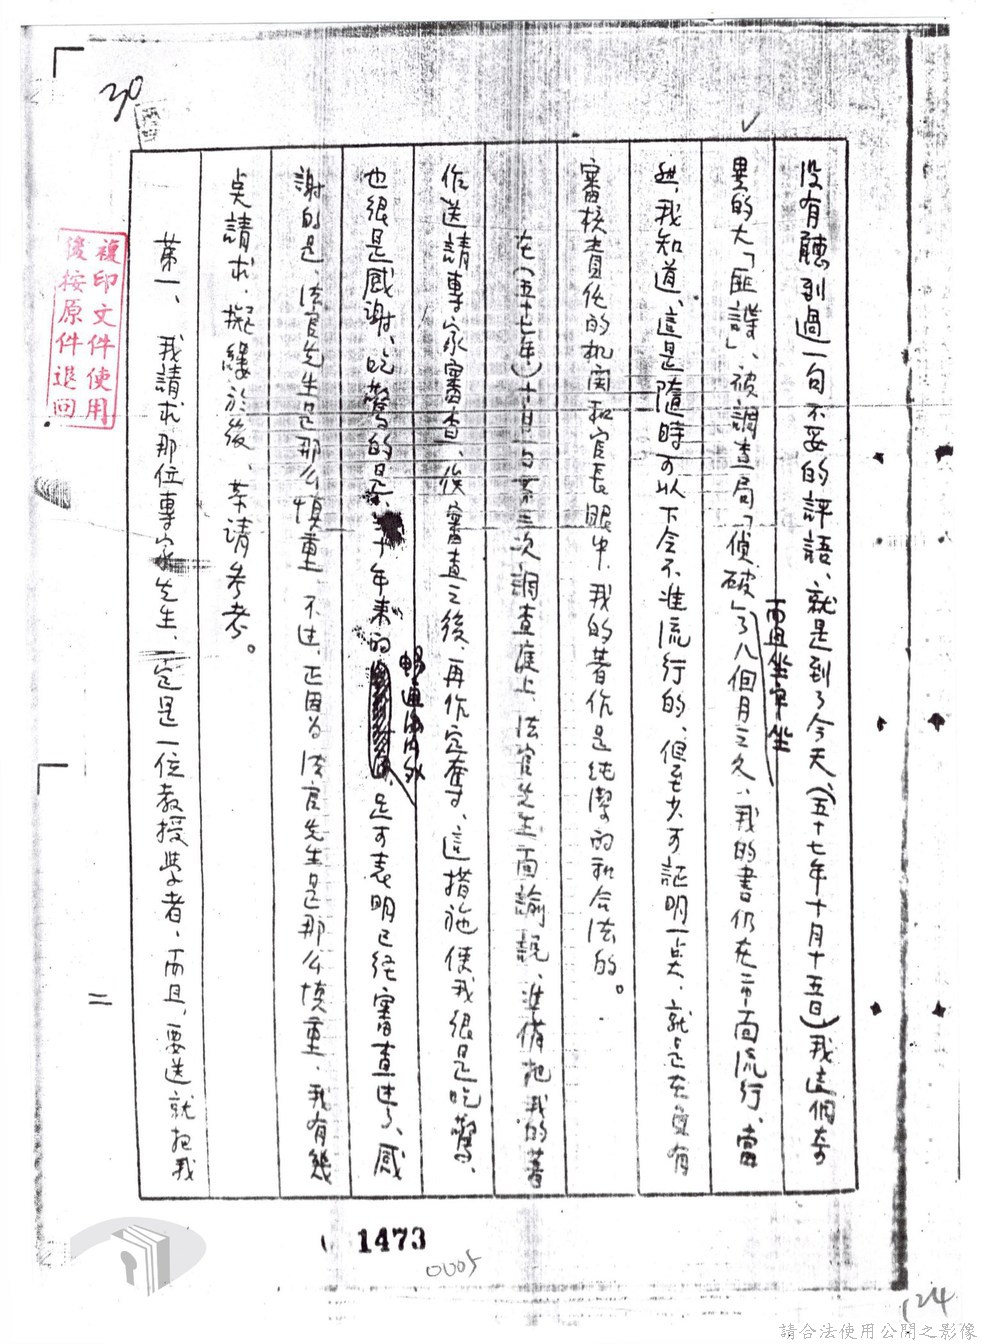 30
複印文件使用
後按原件退回
没有聽到過一句不妥的評語、就是到了今天、(五十七年十月十五日)我這個奇
異的大「匪諜」、被調查局「偵破」了而且坐牢坐八個月之久、我的書仍在市面流行、當
然、我知道、這是隨時可以下令不准流行的、但至少可証明一点、就是在負有
審核責任的机関和官長眼中、我的著作是純潔的和合法的。
在(五十七年)十月一日第三次調查庭上、法官先生面諭說、准備把我的著
作送請專家審查、俟審查之後、再作定奪、這措施使我很是吃驚、
也很是感謝、吃驚的是、年来的暢通海内外、足可表明已经審查过了、感
謝的是、法官先生是那么慎重、不过、正因为法官先生是那么慎重、我有幾
点請求、擬縷於後、恭请参考。
第一、我請求那位專家先生、一定是一位教授學者、而且、要送就把我
二
1473
0005
124
請合法使用公開之影像